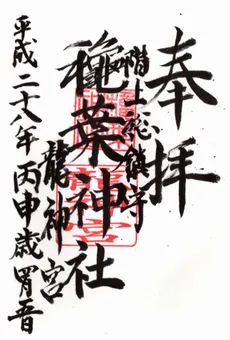 奉拝
階上総鎮守
穐葉神社
龍神宮
平成二十八年丙申歳